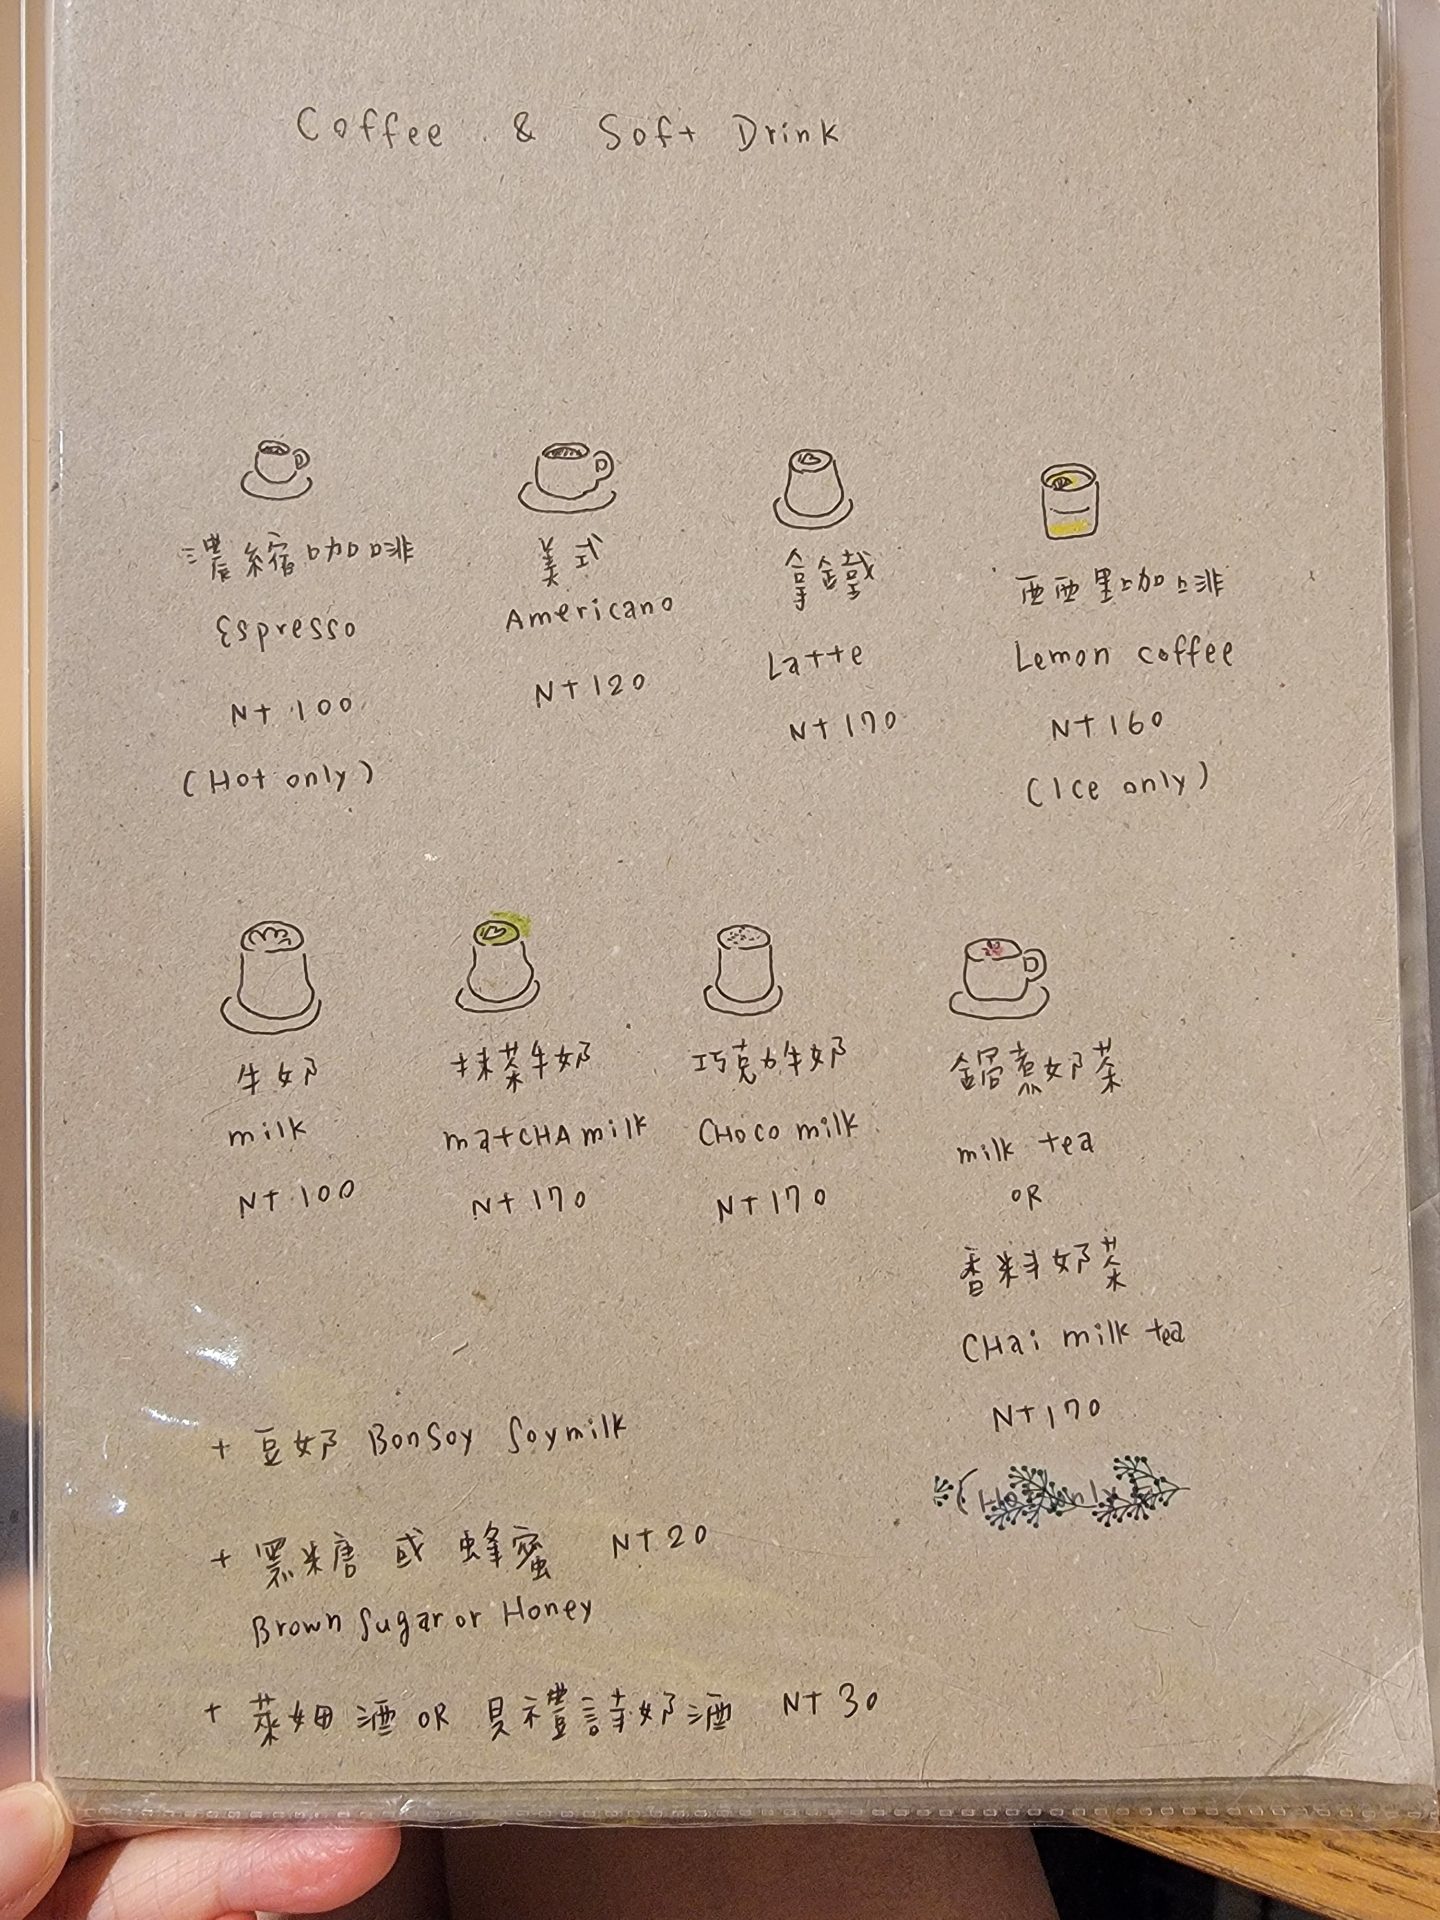 Coffee & Soft Drink
濃縮咖啡
Espresso
NT 100
(Hot only)
美式
Americano
NT 120
拿鐵
Latte
NT 170
西西里咖啡
Lemon coffee
NT 160
(Ice only)
牛奶
milk
NT 100
抹茶牛奶
matCHA milk
NT 170
巧克力牛奶
CHoco milk
NT 170
鍋煮奶茶
milk tea
OR
香料奶茶
CHai milk tea
NT 170
+ 豆奶 BonSoy Soymilk
+ 黑糖 或 蜂蜜 NT 20
Brown Sugar or Honey
+ 萊姆酒 OR 貝禮詩奶酒 NT 30